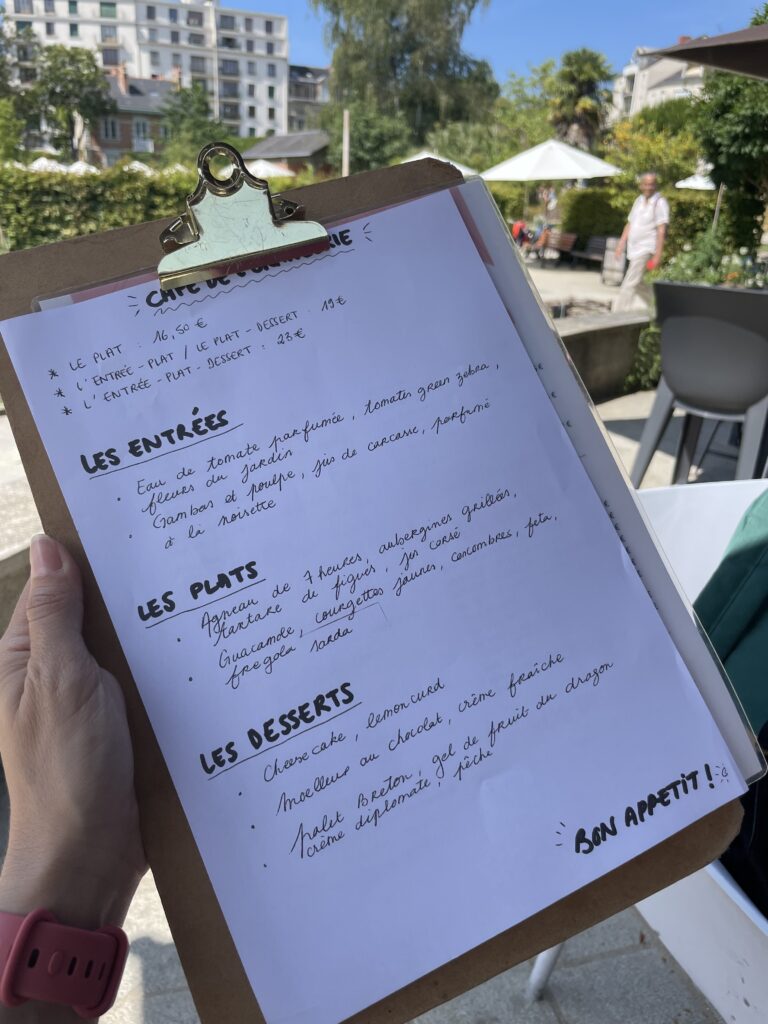 CAFÉ DE L'ORANGERIE
* LE PLAT : 16,50 €
* L'ENTRÉE - PLAT / LE PLAT - DESSERT : 19 €
* L'ENTRÉE - PLAT - DESSERT : 23 €
LES ENTRÉES
• Eau de tomate parfumée, tomates green zebra,
fleurs du jardin
• Gambas et poulpe, jus de carcasse, parfumé
à la noisette
LES PLATS
• Agneau de 7 heures, aubergines grillées,
tartare de figues, jus corsé
• Guacamole, courgettes jaunes, concombres, feta,
fregola sarda
LES DESSERTS
• Cheesecake, lemon curd
• Moelleux au chocolat, crème fraîche
• palet Breton, gel de fruit du dragon
crème diplomate, pêche
BON APPETIT !